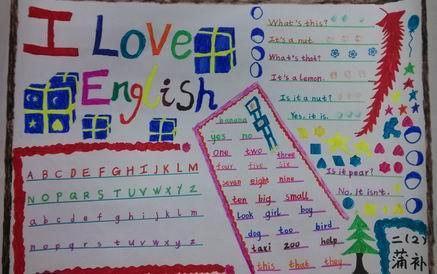 I Love
English
What's this?
It's a nut.
What's that?
It's a lemon.
Is it a nut?
Yes, it is.
Is it pear?
No, it isn't.
banana
yes no
one two three
four five six
seven eight nine
ten big small
look girl boy
dog too bird
taxi zoo help
this that they
A B C D E F G H I J K L M
N O P Q R S T U V W X Y Z
a b c d e f g h i j k l m
n o p q r s t u v w x y z
二(2)
蒲补